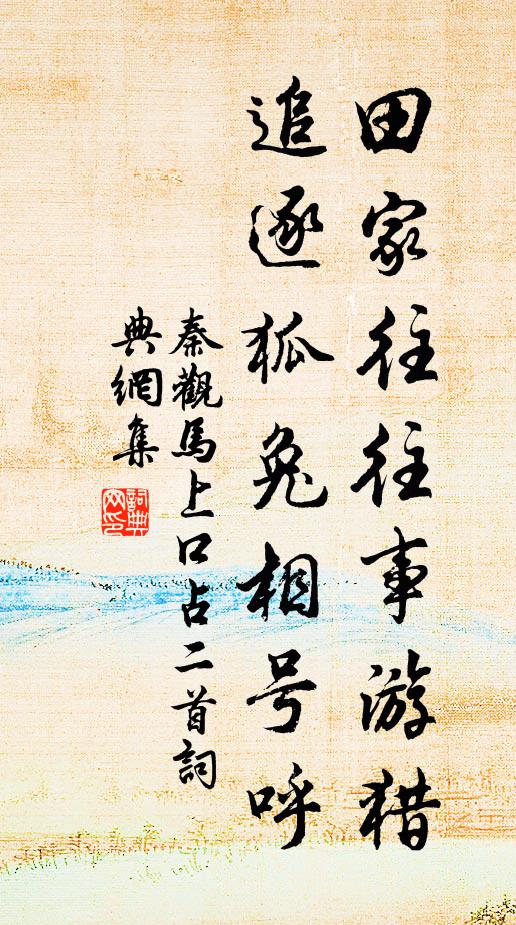 田家往往事游猎
追逐狐兔相号呼
秦觀馬上口占二首詞
典網集
詞典
网印